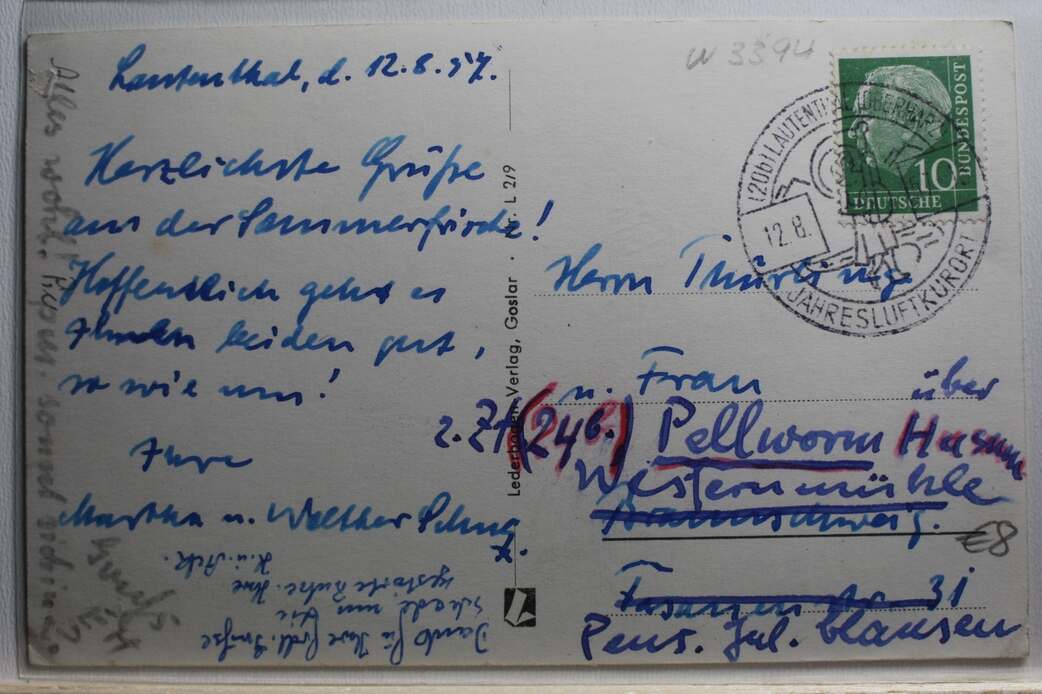 Lautenthal, d. 12.8.57.
Herzlichste Grüße
aus der Sommerfrische!
Hoffentlich geht es
Ihnen beiden gut,
so wie uns!
Ihre
Martha u. Walther
Alles
Dank für Ihre Grüße
schade um die
gestörte Ruhe. Ihre
W 3394
Lederbogen-Verlag, Goslar · Nr. L 2/9
BUNDESPOST
10
DEUTSCHE
(20b) LAUTENTHAL (OBERHARZ)
12.8.
JAHRESLUFTKURORT
Herrn Thürling
u. Frau
über
z. Zt (24b.) Pellworm Husum
Westernmühle
Braunschweig.
Fasanenstr. 31
Pens. Jul. Clausen
€8